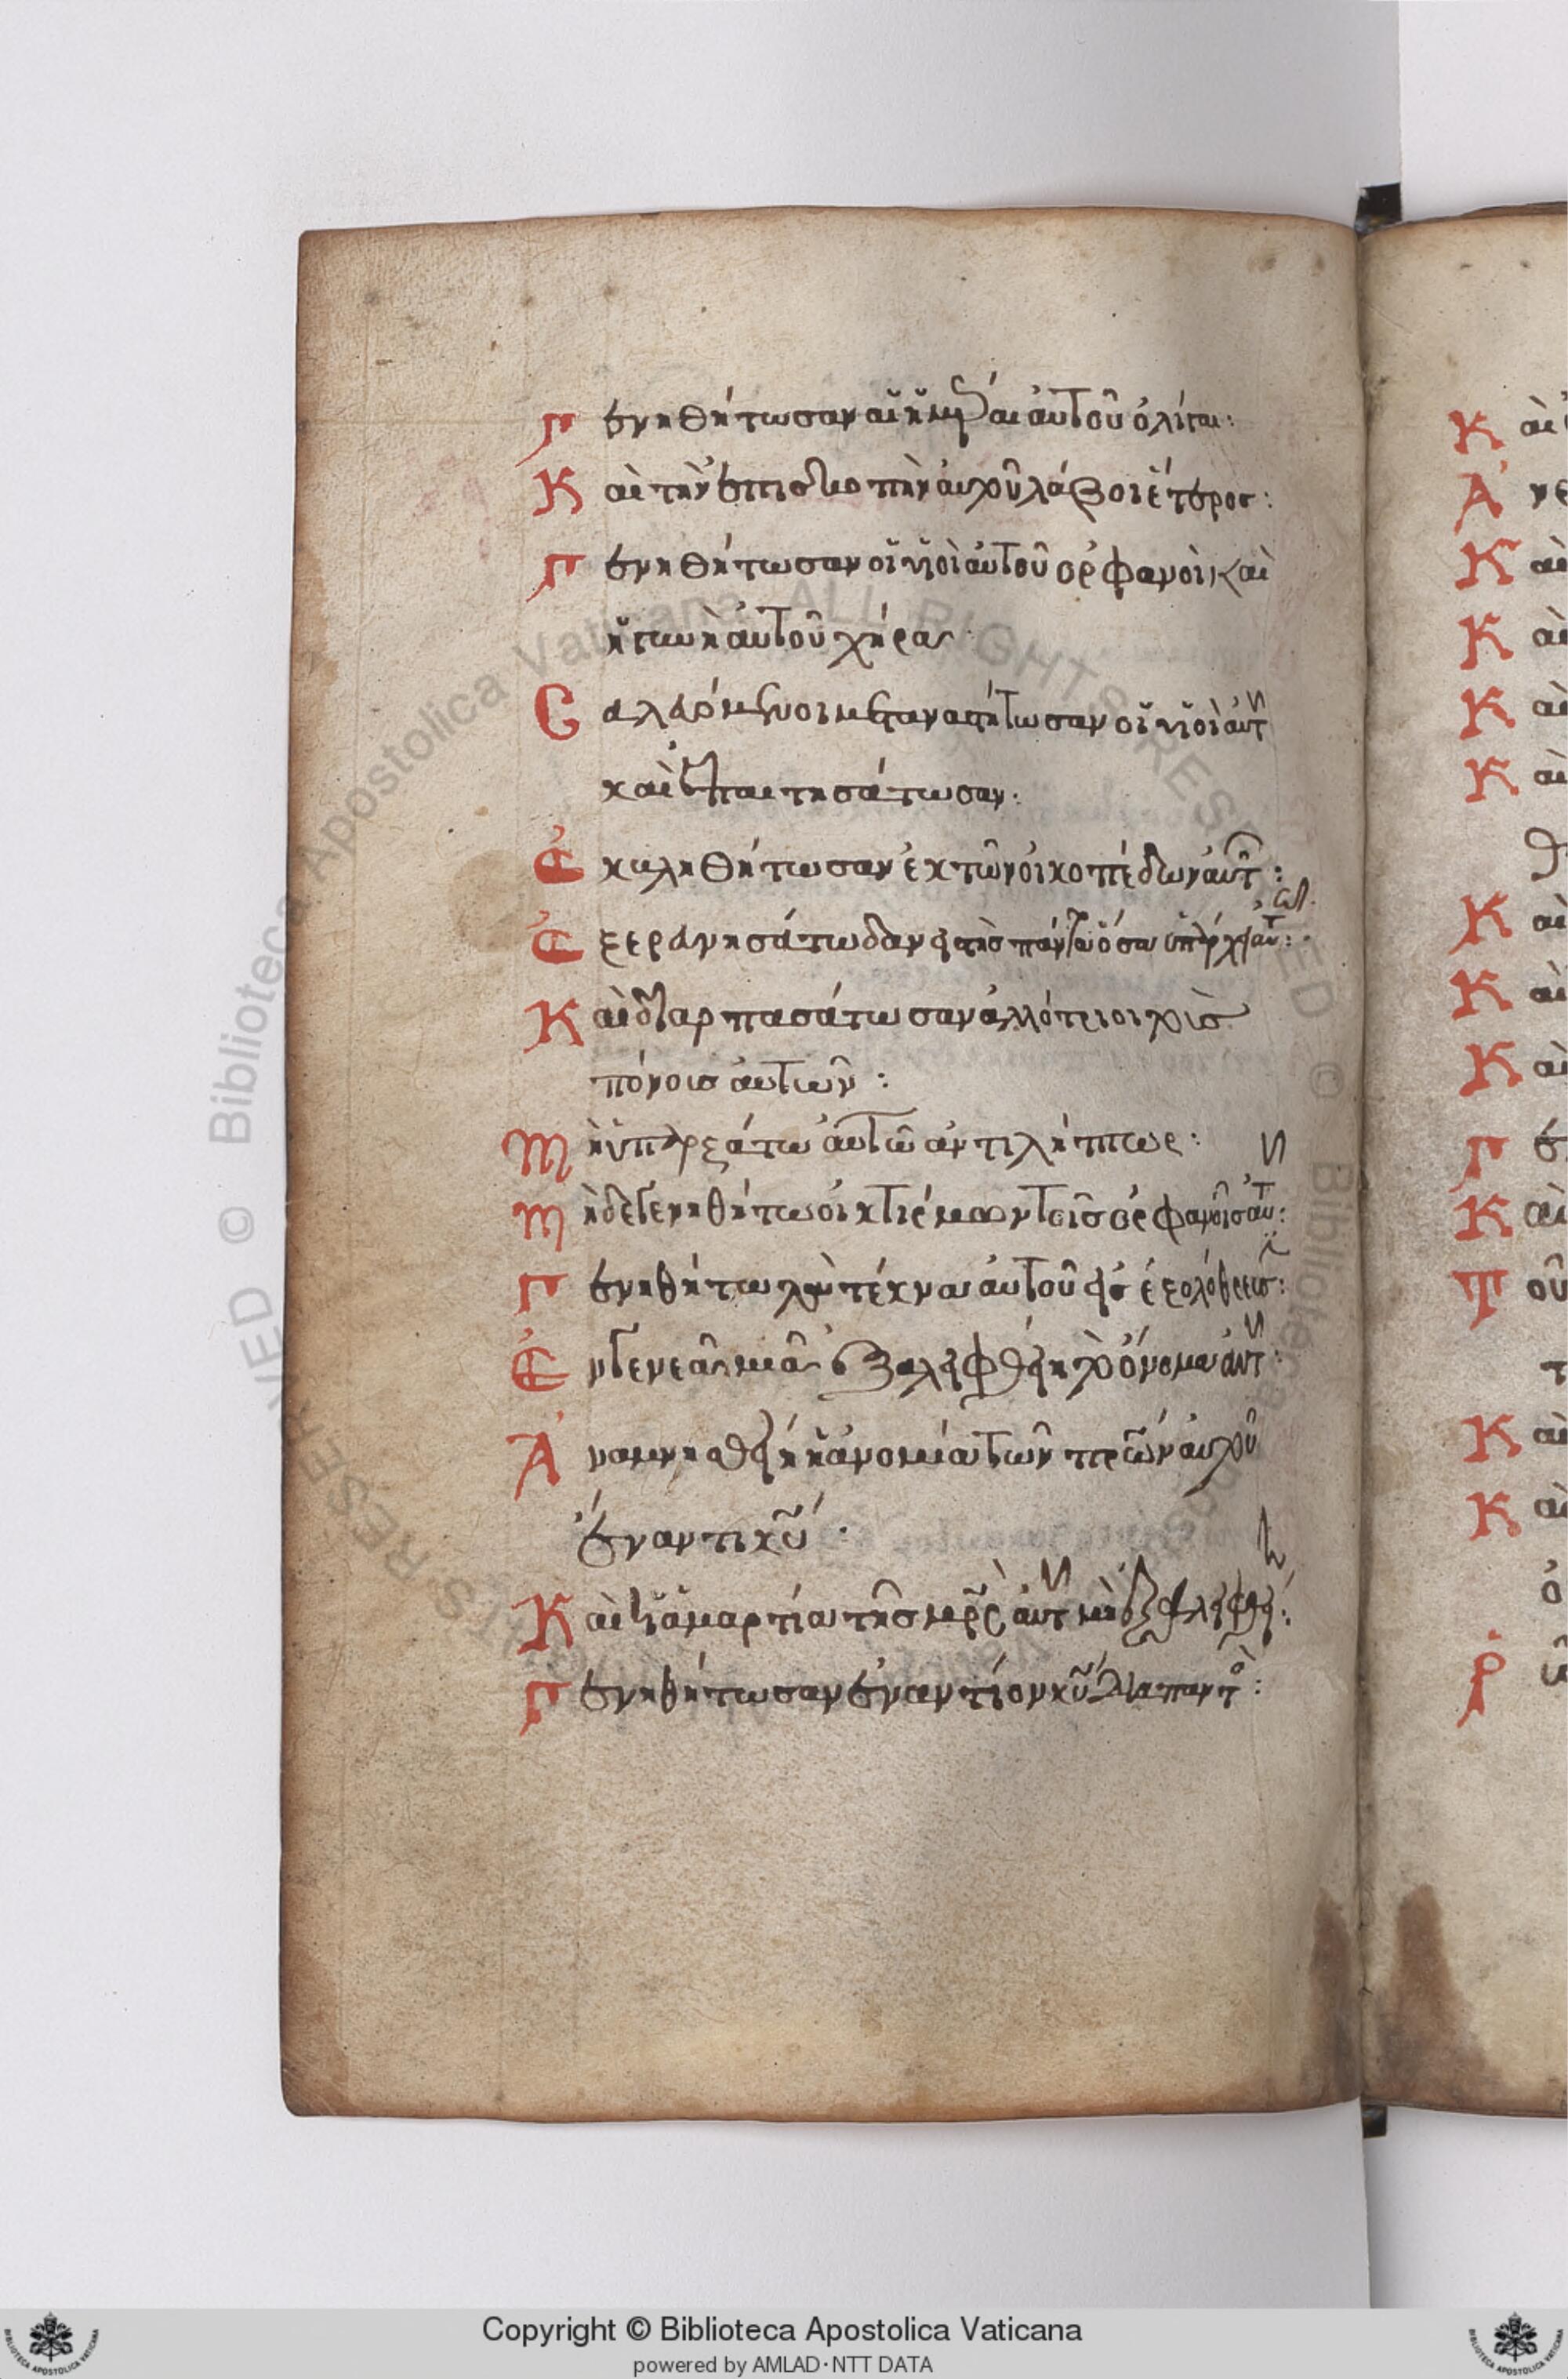 Γενηθήτωσαν αἱ ἡμέραι αὐτοῦ ὀλίγαι:
Καὶ τὴν ἐπισκοπὴν αὐτοῦ λάβοι ἕτερος:
Γενηθήτωσαν οἱ υἱοὶ αὐτοῦ ὀρφανοὶ καὶ
ἡ γυνὴ αὐτοῦ χήρα
Σαλευόμενοι μεταναστήτωσαν οἱ υἱοὶ αὐτ
καὶ ἐπαιτησάτωσαν:
Ἐκβληθήτωσαν ἐκ τῶν οἰκοπέδων αὐτ:
Ἐξερευνησάτω δανειστὴς πάντα ὅσα ὑπάρχει αὐτ:
Καὶ διαρπασάτωσαν ἀλλότριοι τοὺς
πόνους αὐτῶν:
Μὴ ὑπαρξάτω αὐτῶ ἀντιλήπτωρ:
Μηδὲ γενηθήτω οἰκτίρμων τοῖς ὀρφανοῖς αὐτ:
Γενηθήτω τὰ τέκνα αὐτοῦ εἰς ἐξολόθρευσ:
Ἐν γενεᾶ μιᾶ ἐξαλειφθείη τὸ ὄνομα αὐτ:
Ἀναμνησθείη ἡ ἀνομία τῶν πρων αὐτοῦ
ἔναντι κυ
Καὶ ἡ ἁμαρτία τῆς μρς αὐτ μὴ ἐξαλειφθείη:
Γενηθήτωσαν ἐναντίον κυ διαπαντὸ:
Copyright © Biblioteca Apostolica Vaticana
powered by AMLAD·NTT DATA